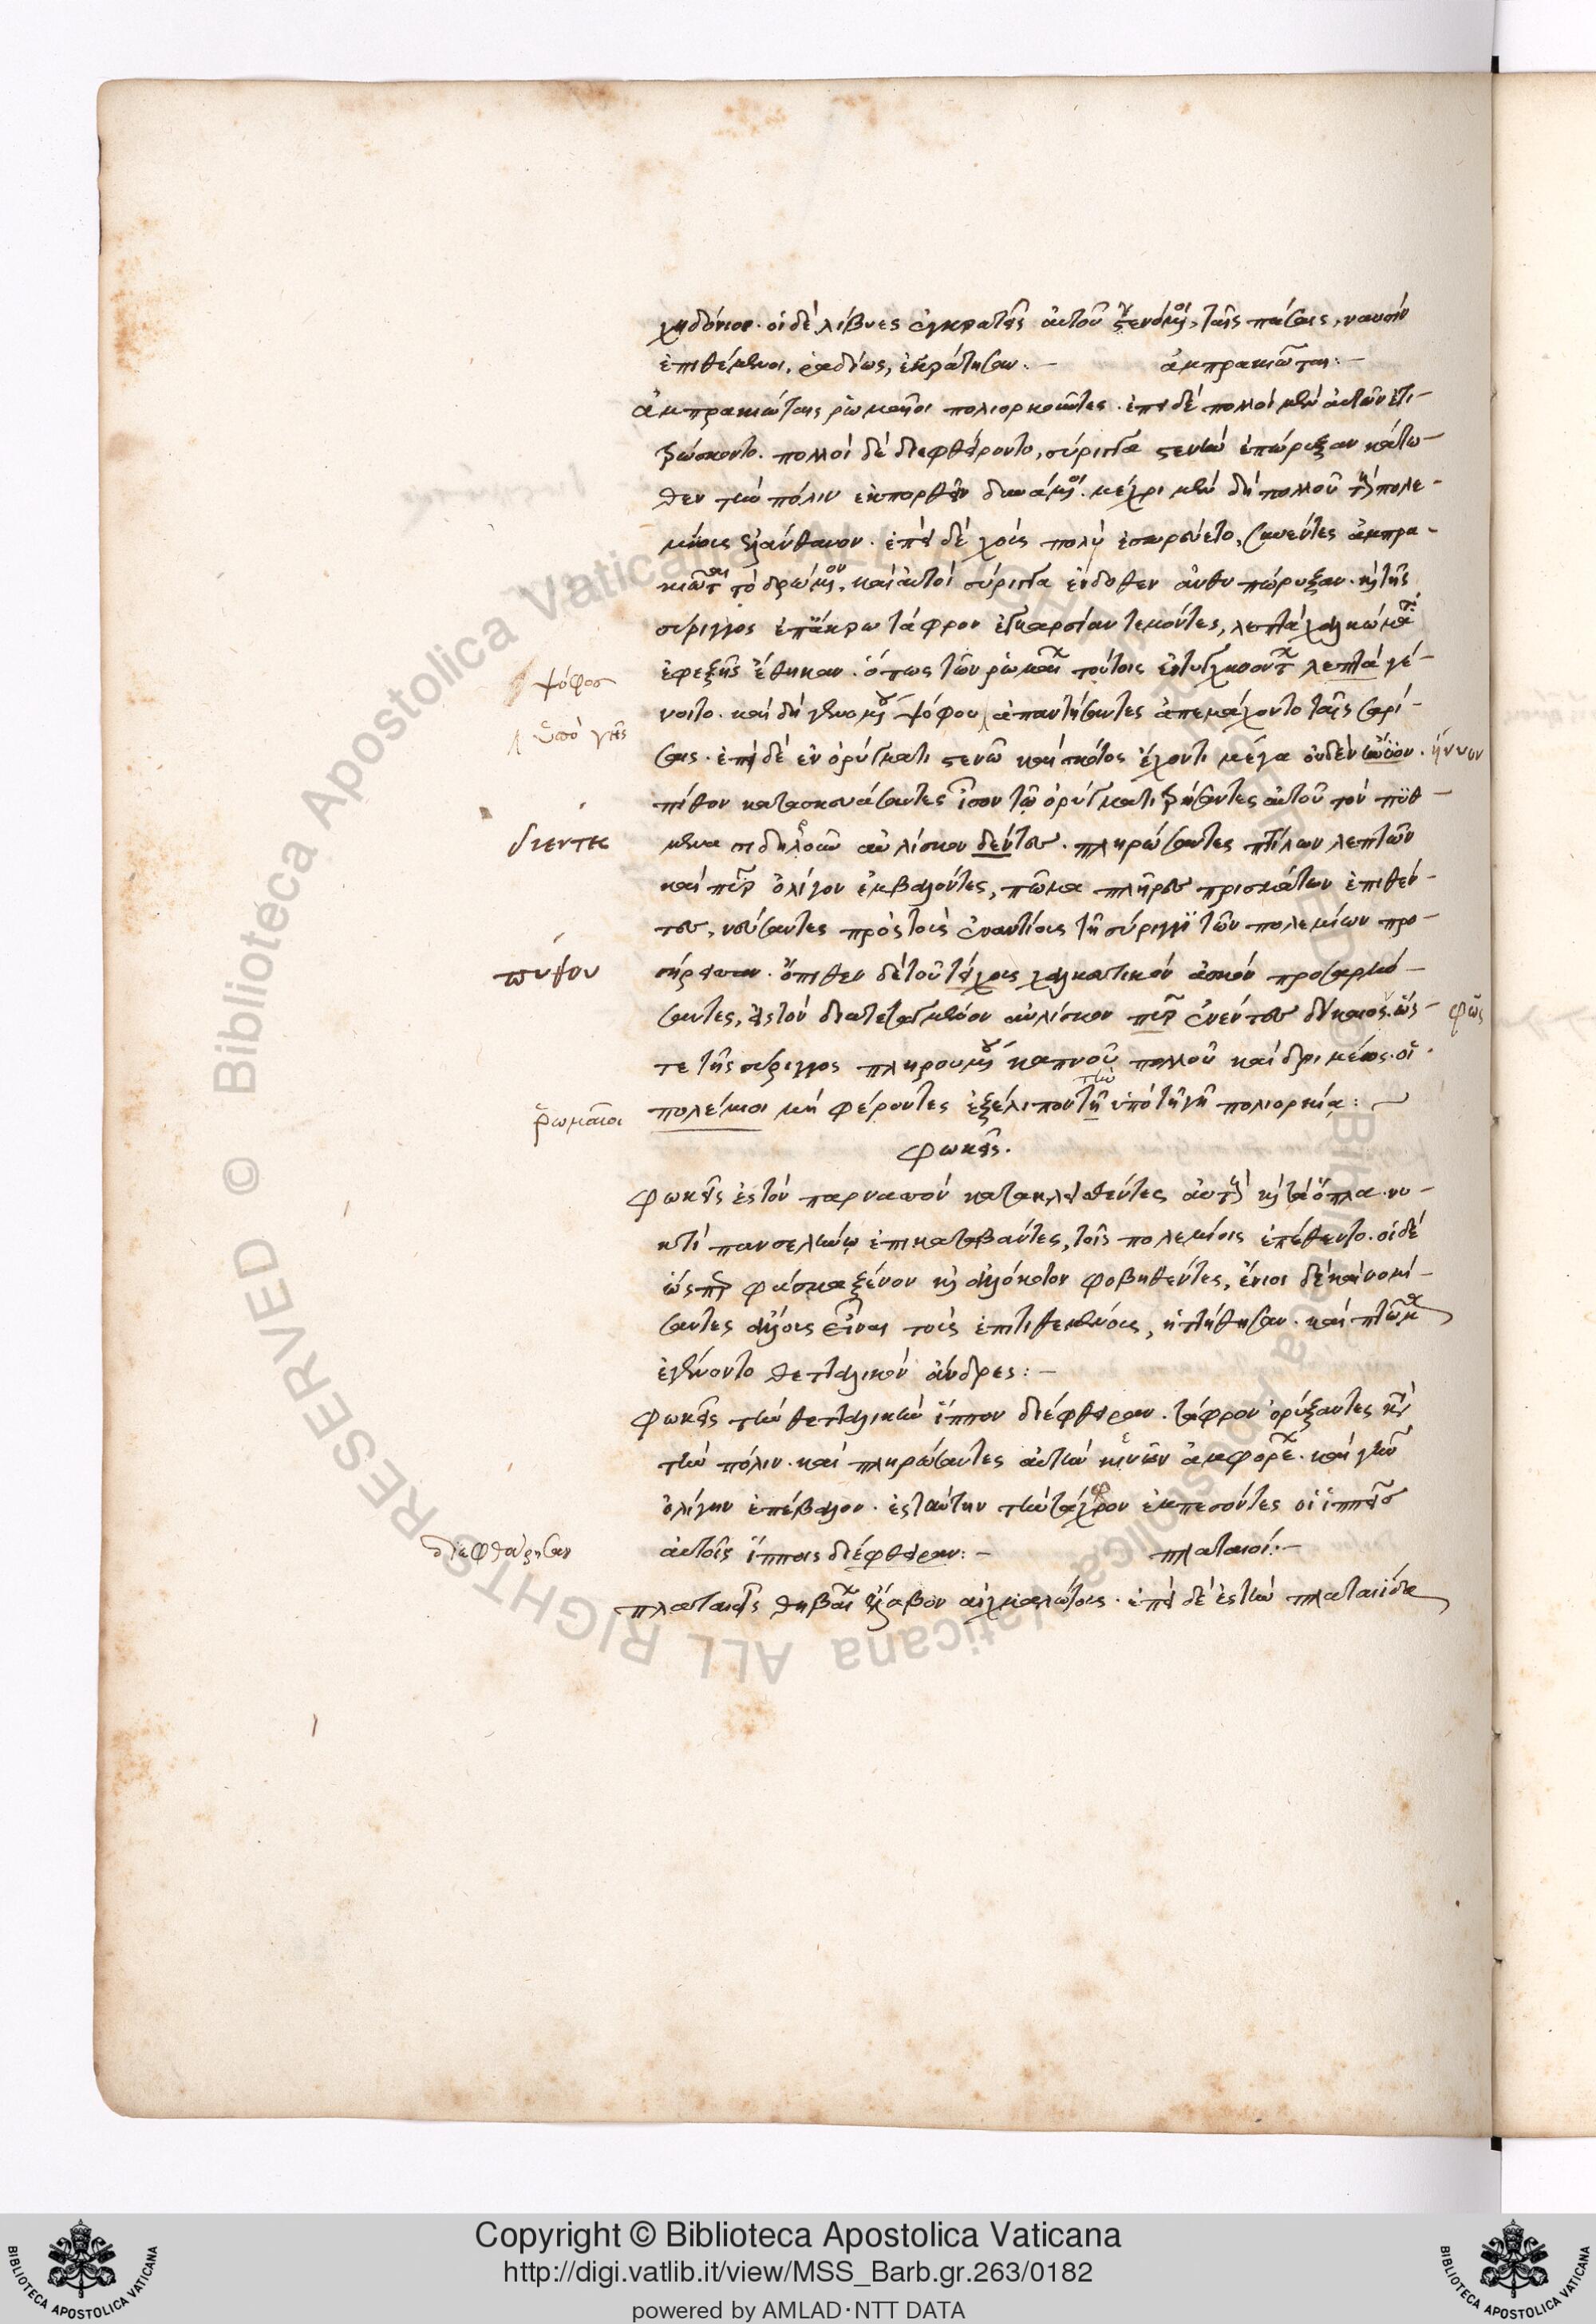 χηδόνιον. οἱ δὲ λίβυες ἐγκρατεῖς αὐτοῦ γενόμενοι, ταῖς πάσαις, ναυσὶν
ἐπιθέμενοι, ῥαδίως, ἐκράτησαν:— ἀμπρακιῶται:—
ἀμπρακιώταις ῥωμαῖοι πολιορκοῦντες. ἐπεὶ δὲ πολλοὶ μὲν αὐτῶν ἐτι-
τρώσκοντο. πολλοὶ δὲ διεφθείροντο, σύριγγα στενὴν ἐπώρυξαν κάτω-
θεν τὴν πόλιν ἐκπορθεῖν δυνάμενοι. μέχρι μὲν δὴ πολλοῦ τοὺς πολε-
μίους ἐλάνθανον. ἐπεὶ δὲ χοῦς πολὺ ἐσωρεύετο, συνέντες ἀμπρα-
κιῶται τὸ δρώμενον, καὶ αὐτοὶ σύριγγα ἔνδοθεν ἀνθυπώρυξαν. καὶ τῆς
σύριγγος ἐπ' ἄκρω τάφρον ἐγκαρσίαν τεμόντες, λεπτὰ χαλκώματα
ἐφεξῆς ἔθηκαν. ὅπως τῶν ῥωμαίων τούτοις ἐντυγχανόντων λεπτὰ γέ-
νοιτο. καὶ δὴ γενομένου ψόφου ἀπαντήσαντες ἀπεμάχοντο ταῖς σαρί-
σαις. ἐπεὶ δὲ ἐν ὀρύγματι στενῶ καὶ σκότος ἔχοντι μέγα οὐδὲν
ἤνυον
πίθον κατασκευάσαντες ἴσον τῷ ὀρύγματι τρήσαντες αὐτοῦ τὸν πυθ-
μένα σιδηροῦν αὐλίσκον δέντες. πληρώσαντες πτίλων λεπτῶν
καὶ πῦρ ὀλίγον ἐμβαλόντες, πῶμα πλῆρες πρισμάτων ἐπιθέν-
τες, νεύσαντες πρὸς τοὺς ἐναντίους τῇ σύριγγι τῶν πολεμίων προ-
σήρεισαν. ὄπιθεν δὲ τοῦ τείχους χαλκευτικὸν ἀσκὸν προσαρμό-
σαντες, εἰς τὸν διατεταγμένον αὐλίσκον πῦρ ἐνέντες δίκαιος. ὥς-
φῶς
τε τῆς σύριγγος πληρουμένου καπνοῦ πολλοῦ καὶ δριμέως. οἱ
πολέμιοι μὴ φέροντες ἐξέλιπον τῇ ὑπὸ τῇ γῇ πολιορκία:
φωκεῖς.
φωκεῖς ἐς τὸν παρνασὸν κατακλεισθέντες αὐτοὺς καὶ τὰ ὅπλα. νυ-
κτὶ πανσελήνω ἐπικαταβάντες, τοῖς πολεμίοις ἐπέθεντο. οἱ δὲ
ὡς πρὸς φάσμα ξένον καὶ ἀλλόκοτον φοβηθέντες, ἔνιοι δὲ καὶ νομί-
σαντες ἄλλους εἶναι τοὺς ἐπιτιθεμένους, ἡττήθησαν. καὶ πτῶμα
ἐγένοντο θετταλικὸν ἄνδρες:—
φωκεῖς τὴν θετταλικὴν ἵππον διέφθειραν. τάφρον ὀρύξαντες κατὰ
τὴν πόλιν. καὶ πληρώσαντες αὐτὴν κενῶν ἀμφορέων. καὶ γῆν
ὀλίγην ἐπέβαλον. ἐς ταύτην τὴν τάφρον ἐμπεσόντες οἱ ἱππεῖς
αὐτοῖς ἵπποις διέφθειραν:— πλαταιοί:—
πλαταιεῖς θηβαίων ἔλαβον αἰχμαλώτους. ἐπεὶ δὲ ἐς τὴν πλαταιίδα
ψόφος
ὑπὸ γῆς
διεντες
πυθου
ῥωμαῖοι
διεφθάρησαν
Copyright © Biblioteca Apostolica Vaticana
http://digi.vatlib.it/view/MSS_Barb.gr.263/0182
powered by AMLAD·NTT DATA
BIBLIOTECA APOSTOLICA VATICANA
BIBLIOTECA APOSTOLICA VATICANA
© Biblioteca Apostolica Vaticana ALL RIGHTS RESERVED